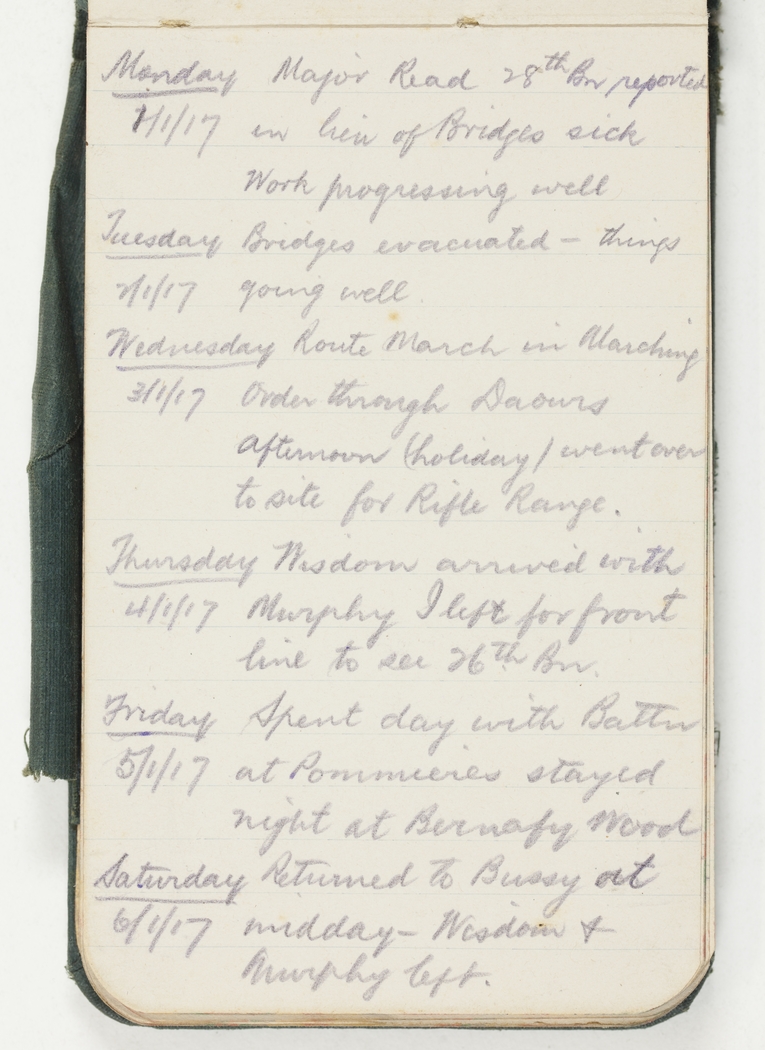 Monday Major Read 28th Bn reported
1/1/17 in lieu of Bridges sick
Work progressing well
Tuesday Bridges evacuated – things
2/1/17 going well.
Wednesday Route March in Marching
3/1/17 Order through Daours
afternoon (holiday) went over
to site for Rifle Range.
Thursday Wisdom arrived with
4/1/17 Murphy I left for front
line to see 26th Bn.
Friday Spent day with Battn
5/1/17 at Pommieres stayed
night at Bernafy Wood
Saturday Returned to Bussy at
6/1/17 midday – Wisdom &
Murphy left.